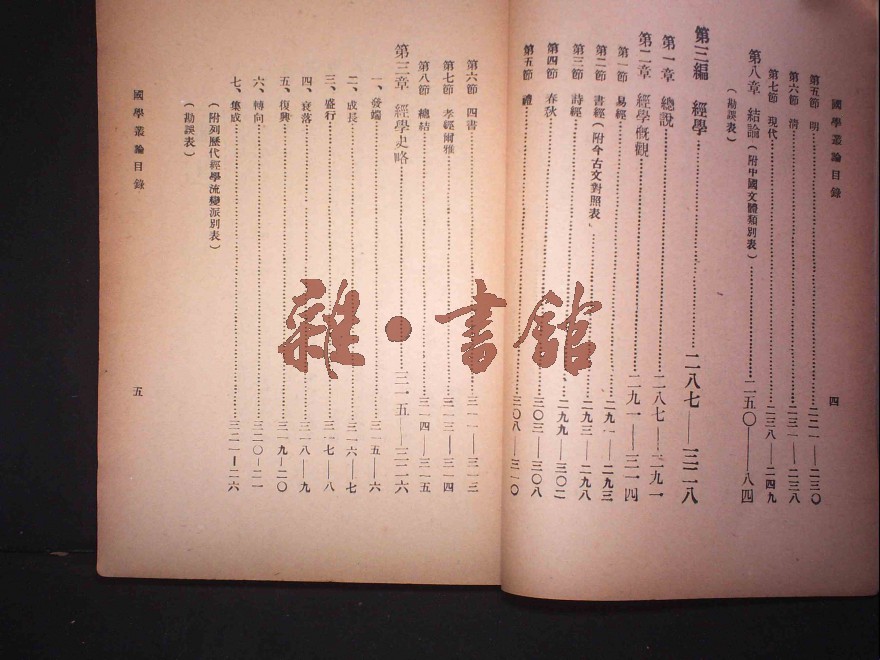 國學叢論目錄
四
第五節 明……二二一——二三〇
第六節 清……二三一——二三八
第七節 現代……二三八——二四九
第八章 結論(附中國文體類別表)……二五〇——八四
(勘誤表)
第三編 經學……二八七——三二八
第一章 總說……二八七——二九一
第二章 經學概觀……二九一——三一四
第一節 易經……二九一——二九三
第二節 書經(附今古文對照表)……二九三——二九八
第三節 詩經……二九九——三〇二
第四節 春秋……三〇三——三〇八
第五節 禮……三〇八——三一〇
第六節 四書……三一一——三一三
第七節 孝經爾雅……三一三——三一四
第八節 總結……三一四——三一五
第三章 經學史略……三一五——三二六
一、發端……三一五——六
二、成長……三一六——七
三、盛行……三一七——八
四、衰落……三一八——九
五、復興……三一九——二〇
六、轉向……三二〇——二一
七、集成……三二一——二六
(附列歷代經學流變派別表)
(勘誤表)
國學叢論目錄
五
雜·書館